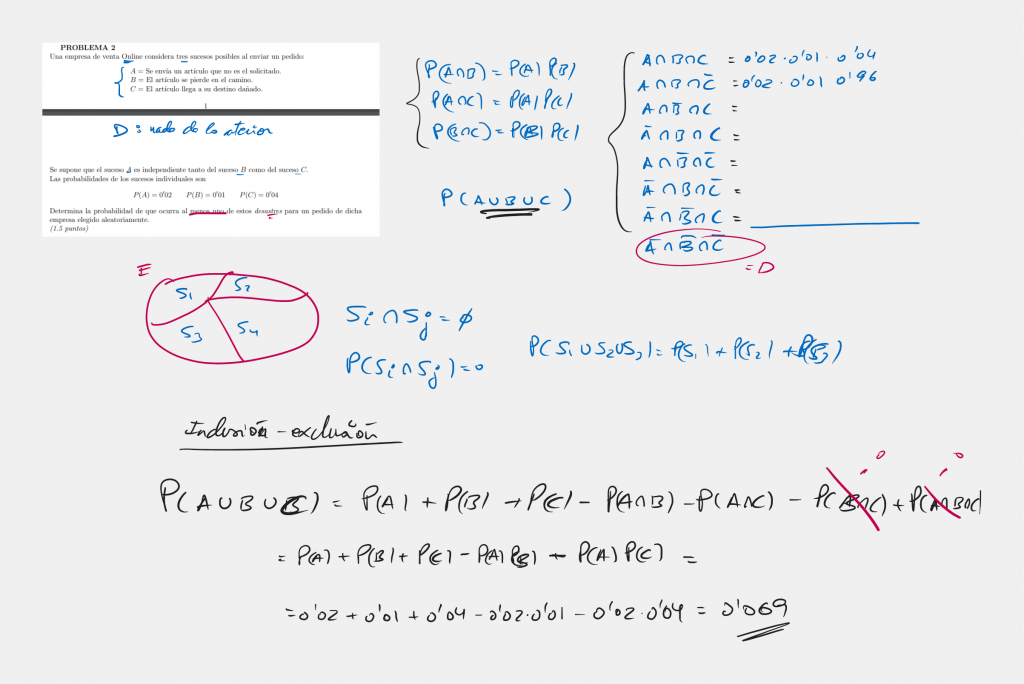 PROBLEMA 2
Una empresa de venta Online considera tres sucesos posibles al enviar un pedido:
A = Se envía un artículo que no es el solicitado.
B = El artículo se pierde en el camino.
C = El artículo llega a su destino dañado.
1
D : nada de lo aterior
Se supone que el suceso A es independiente tanto del suceso B como del suceso C.
Las probabilidades de los sucesos individuales son
P(A) = 0'02 P(B) = 0'01 P(C) = 0'04
Determina la probabilidad de que ocurra al menos uno de estos desastres para un pedido de dicha
empresa elegido aleatoriamente.
(1.5 puntos)
P(A∩B) = P(A) P(B)
P(A∩C) = P(A) P(C)
P(B∩C) = P(B) P(C)
P(A∪B∪C)
A∩B∩C = 0'02 · 0'01 · 0'04
A∩B∩C̄ = 0'02 · 0'01 0'96
A∩B̄∩C =
Ā∩B∩C =
A∩B̄∩C̄ =
Ā∩B∩C̄ =
Ā∩B̄∩C =
Ā∩B̄∩C̄
= D
E
S1 S2
S3 S4
Si∩Sj = ø
P(Si∩Sj) = 0
P(S1∪S2∪S3) = P(S1) + P(S2) + P(S3)
Inclusión - exclusión
P(A∪B∪C) = P(A) + P(B) + P(C) - P(A∩B) - P(A∩C) - P(B∩C) + P(A∩B∩C)
0 0
= P(A) + P(B) + P(C) - P(A) P(B) - P(A) P(C) =
= 0'02 + 0'01 + 0'04 - 0'02·0'01 - 0'02·0'04 = 0'069